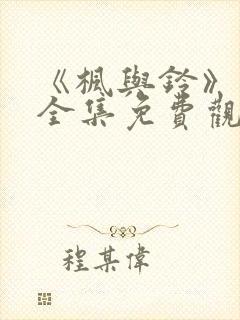 《楓與鈴》
全集免費觀
程某偉